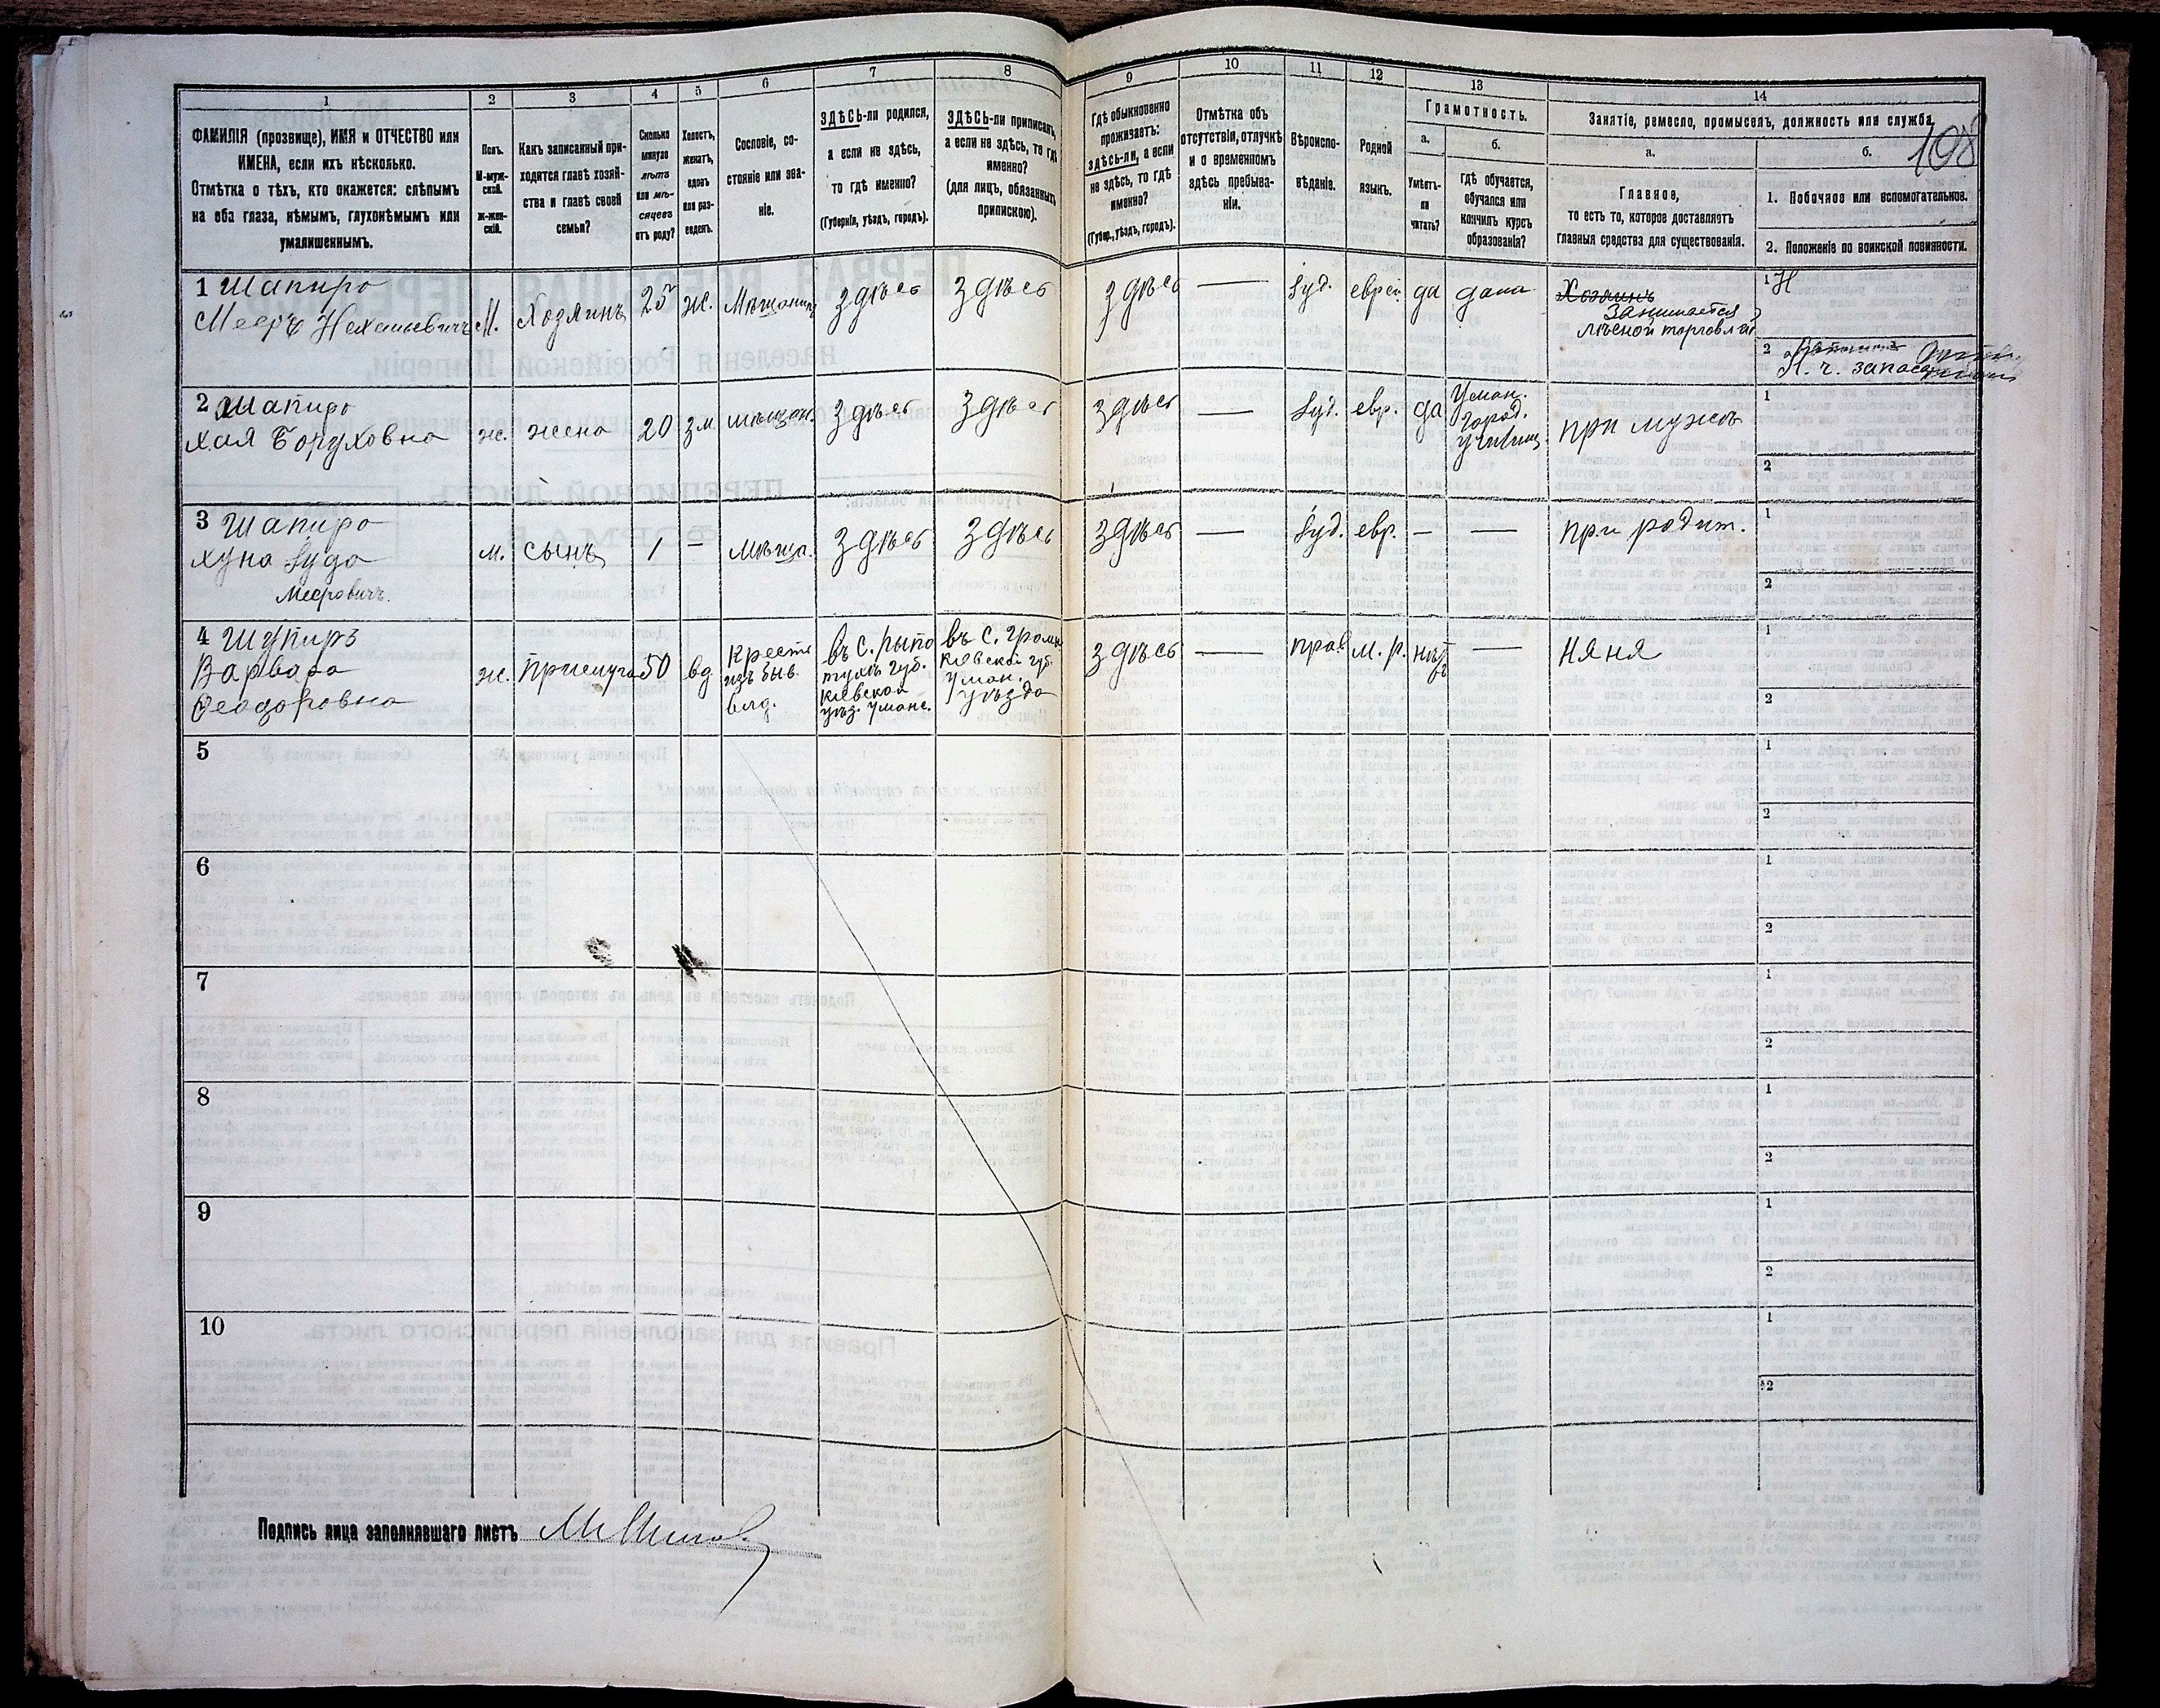 108
1
2
3
4
5
6
7
8
9
10
11
12
13
14
ФАМИЛІЯ (прозвище), ИМЯ и ОТЧЕСТВО или
ИМЕНА, если ихъ нѣсколько.
Отмѣтка о тѣхъ, кто окажется: слѣпымъ
на оба глаза, нѣмымъ, глухонѣмымъ или
умалишеннымъ.
Полъ.
М-муж-
ской.
Ж-жен-
скій.
Какъ записанный при-
ходится главѣ хозяй-
ства и главѣ своей
семьи?
Сколько
минуло
лѣтъ
или мѣ-
сяцевъ
отъ роду?
Холостъ,
женатъ,
вдовъ
или раз-
веденъ.
Сословіе, со-
стояніе или зва-
ніе.
ЗДѢСЬ-ли родился,
а если не здѣсь,
то гдѣ именно?
(Губернія, уѣздъ, городъ).
ЗДѢСЬ-ли приписанъ,
а если не здѣсь, то гдѣ
именно?
(для лицъ, обязанныхъ
припискою).
Гдѣ обыкновенно
проживаетъ:
здѣсь-ли, а если
не здѣсь, то гдѣ
именно?
(Губер., уѣздъ, городъ).
Отмѣтка объ
отсутствіи, отлучкѣ
и о временномъ
здѣсь пребыва-
ніи.
Вѣроиспо-
вѣданіе.
Родной
языкъ.
Грамотность.
а.
Умѣетъ-
ли
читать?
б.
гдѣ обучается,
обучался или
кончилъ курсъ
образованія?
Занятіе, ремесло, промыселъ, должность или служба.
а.
Главное,
то есть то, которое доставляетъ
главныя средства для существованія.
б.
1. Побочное или вспомогательное.
2. Положеніе по воинской повинности.
1 Шапиро
Мееръ
М.
Хозяинъ
25
ж.
Мѣщанинъ
здѣсь
здѣсь
здѣсь
—
Іуд.
еврей.
да
дома
Хозяинъ
Занимается
лѣсной торговлей
1 Н
2
запаса
2 Шапиро
Хая Боруховна
ж.
жена
20
зм
мѣщан.
здѣсь
здѣсь
здѣсь
—
Іуд.
евр.
да
Уман.
Город.
училищ.
при мужѣ
1
2
3 Шапиро
Хуна Іуда
Мееровичъ.
м.
сынъ
1
-
мѣща.
здѣсь
здѣсь
здѣсь
—
Іуд.
евр.
—
—
при родит.
1
2
4
Варвара
Феодоровна
ж.
Прислуга
50
вд
Крест.
изъ быв.
влд.
въ с.
губ.
Кіевская
уѣз. Уманс.
въ с.
Кіевской губ.
Уман.
уѣзда
здѣсь
—
прав.
м. р.
нѣтъ
—
няня
1
2
5
1
2
6
1
2
7
1
2
8
1
2
9
1
2
10
1
2
Подпись лица заполнявшаго листъ